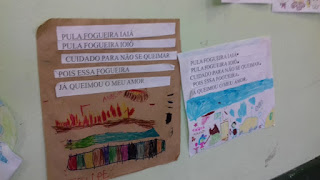 PULA FOGUEIRA IAIÁ
PULA FOGUEIRA IOIÔ
CUIDADO PARA NÃO SE QUEIMAR
POIS ESSA FOGUEIRA
JÁ QUEIMOU O MEU AMOR
PULA FOGUEIRA IAIÁ
PULA FOGUEIRA IOIÔ
CUIDADO PARA NÃO SE QUEIMAR
POIS ESSA FOGUEIRA
JÁ QUEIMOU O MEU AMOR